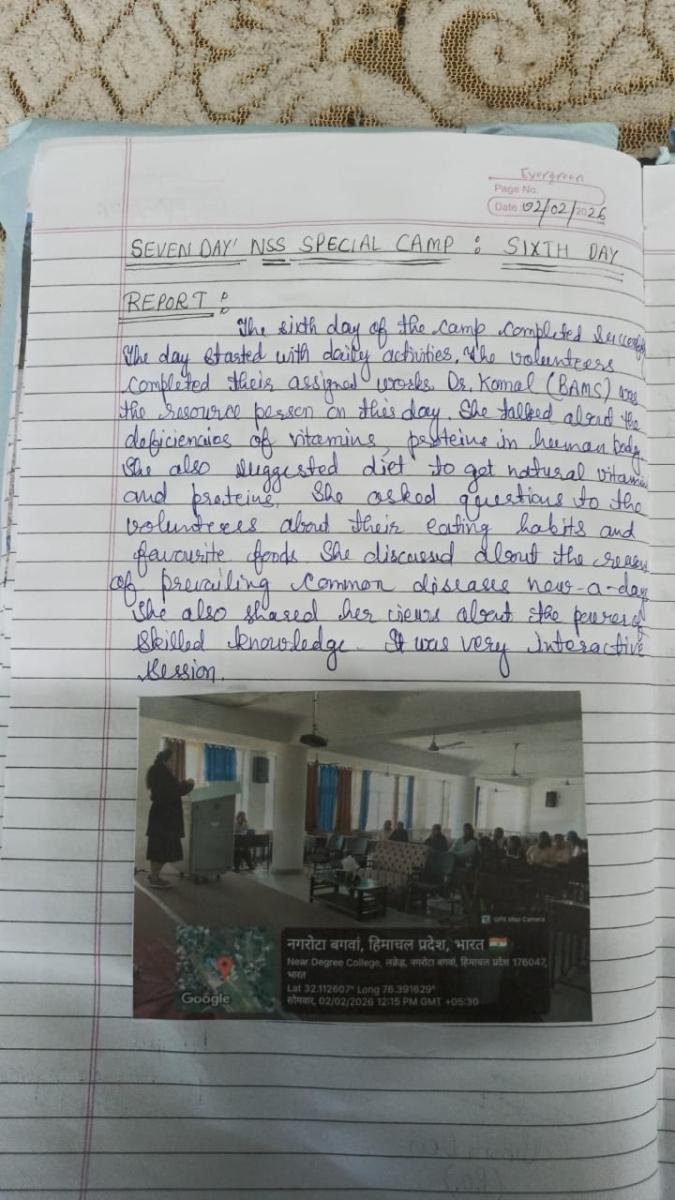 Evergreen
Page No.
Date 02/02/2026
SEVEN DAY' NSS SPECIAL CAMP : SIXTH DAY
REPORT :
The sixth day of the camp completed
The day started with daily activities. The volunteers
completed their assigned works. Dr. Komal (BAMS) was
the resource person on this day. She talked about the
deficiencies of vitamins, proteins in human body.
She also suggested diet to get natural
and proteins. She asked questions to the
volunteers about their eating habits and
favourite foods. She discussed about the
of prevailing common diseases now-a-day
She also shared her views about the
skilled knowledge. It was very interactive
session.
GPS Map Camera
नगरोटा बगवां, हिमाचल प्रदेश, भारत
Near Degree College, नगरोटा बगवां, हिमाचल प्रदेश 176047,
भारत
Lat 32.112607° Long 76.391629°
सोमवार, 02/02/2026 12:15 PM GMT +05:30
Google